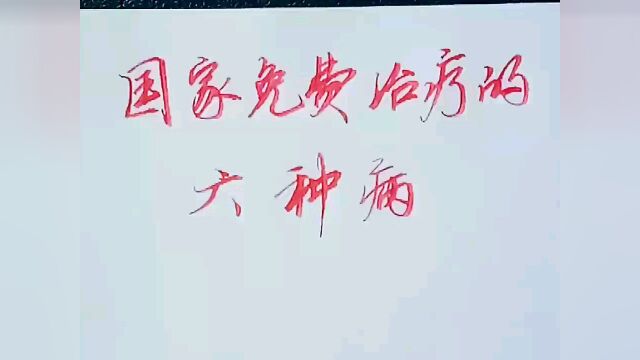 国家免费治疗的
六种病